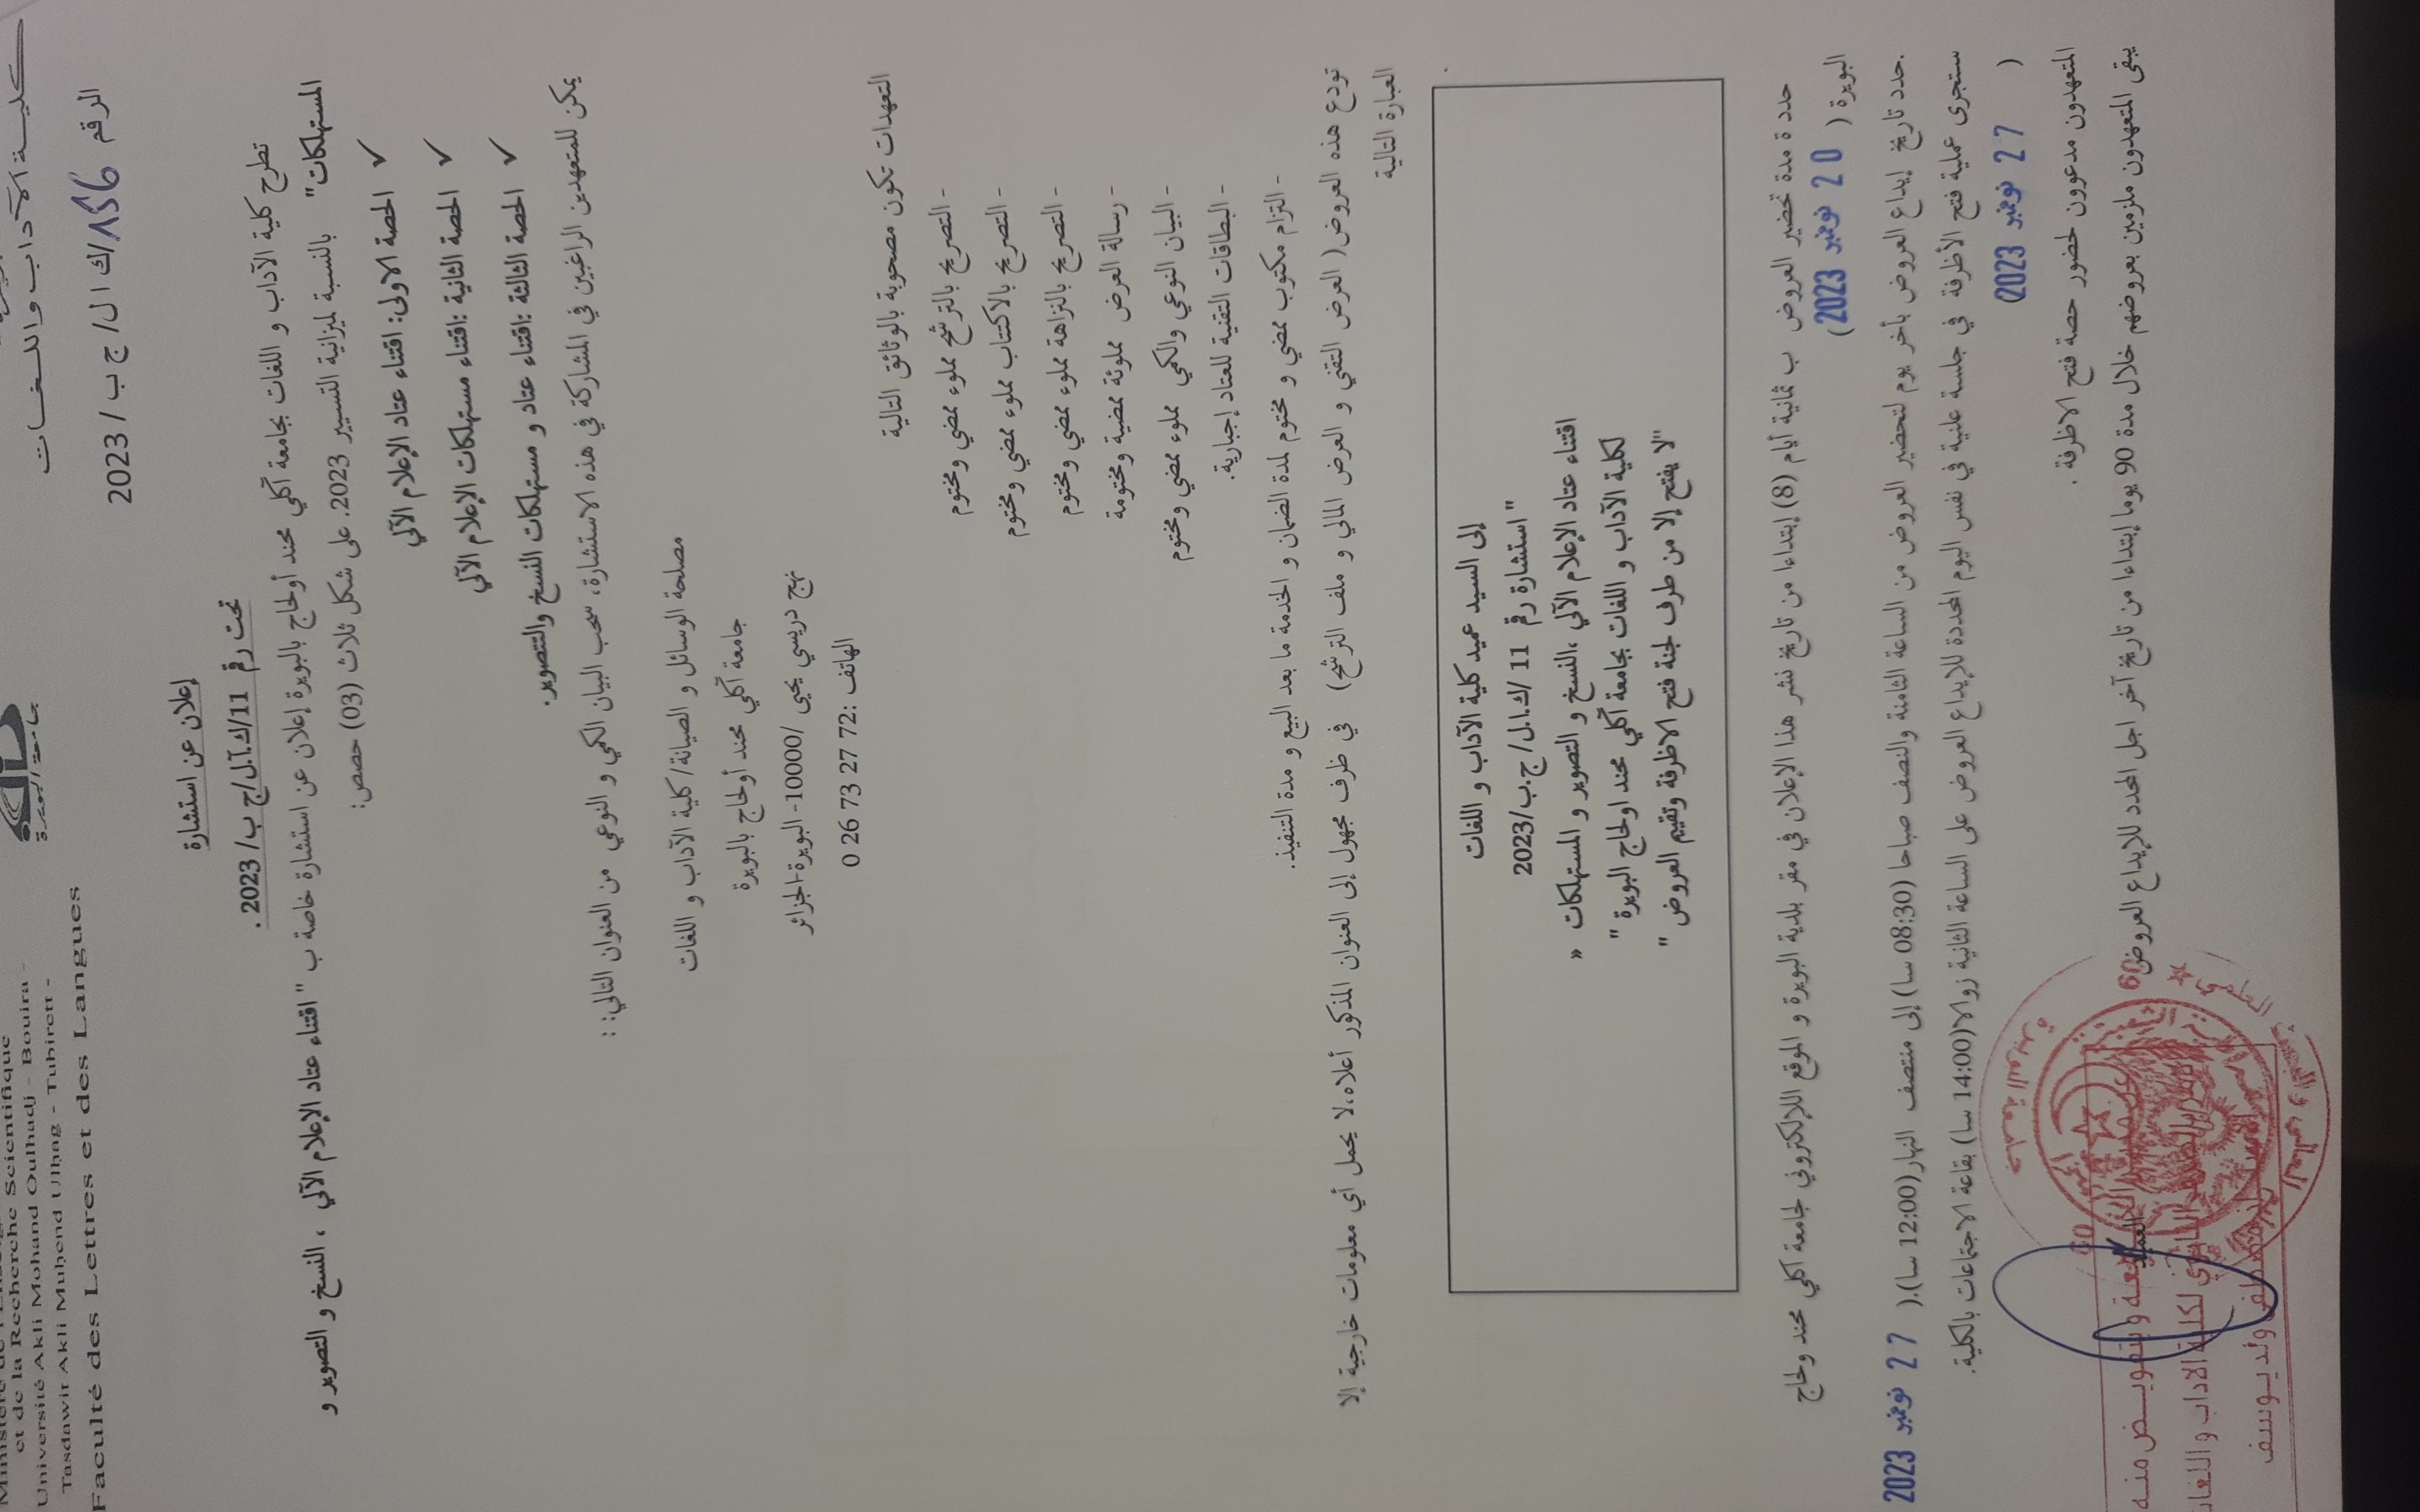 et de la Recherche Scientifique
Université Akli Mohand Oulhadj - Bouira -
Tasdawit Akli Muḥend Ulḥağ - Tubirett -
Faculté des Lettres et des Langues
كليـة الآداب واللـغـات
الرقم 156/ك ا ل/ ج ب / 2023
إعلان عن استشارة
تحت رقم 11/ك.آ.ل/ج ب/ 2023 .
تطرح كلية الآداب و اللغات بجامعة آكلي محند أولحاج بالبويرة إعلان عن استشارة خاصة ب " اقتناء عتاد الإعلام الآلي ، النسخ و التصوير و
المستهلكات" بالنسبة لميزانية التسيير 2023. على شكل ثلاث (03) حصص:
✓ الحصة الاولى: اقتناء عتاد الإعلام الآلي
✓ الحصة الثانية :اقتناء مستهلكات الإعلام الآلي
✓ الحصة الثالثة :اقتناء عتاد و مستهلكات النسخ والتصوير.
يمكن للمتعهدين الراغبين في المشاركة في هذه الاستشارة، سحب البيان الكمي و النوعي من العنوان التالي: :
مصلحة الوسائل و الصيانة/ كلية الآداب و اللغات
جامعة آكلي محند أولحاج بالبويرة
نهج دريسي يحيى /10000- البويرة-الجزائر
الهاتف :72 27 73 26 0
التعهدات تكون مصحوبة بالوثائق التالية
- التصريح بالترشح مملوء ممضي ومختوم
- التصريح بالاكتتاب مملوء ممضي ومختوم
- التصريح بالنزاهة مملوء ممضي ومختوم
- رسالة العرض مملوئة ممضية ومختومة
- البيان النوعي والكمي مملوء ممضي ومختوم
- البطاقات التقنية للعتاد إجبارية.
- التزام مكتوب ممضي و مختوم لمدة الضمان و الخدمة ما بعد البيع و مدة التنفيذ.
تودع هذه العروض( العرض التقني و العرض المالي و ملف الترشح) في ظرف مجهول إلى العنوان المذكور أعلاه،لا يحمل أي معلومات خارجية إلا
العبارة التالية
إلى السيد عميد كلية الآداب و اللغات
" استشارة رقم 11 /ك.ا.ل/ ج.ب/2023
اقتناء عتاد الإعلام الآلي ،النسخ و التصوير و المستهلكات »
لكلية الآداب و اللغات بجامعة آكلي محند اولحاج البويرة "
"لا يفتح إلا من طرف لجنة فتح الاظرفة وتقييم العروض "
حدد ة مدة تحضير العروض ب ثمانية أيام (8) إبتداءا من تاريخ نشر هذا الإعلان في مقر بلدية البويرة و الموقع اللإلكتروني لجامعة اكلي محند ولحاج
البويرة ( 20 نوفمبر 2023)
.حدد تاريخ إيداع العروض بأخر يوم لتحضير العروض من الساعة الثامنة والنصف صباحا (08:30 سا) إلى منتصف النهار(12:00 سا).( 27 نوفمبر 2023
ستجرى عملية فتح الأظرفة في جلسة علنية في نفس اليوم المحددة للإيداع العروض على الساعة الثانية زوالا(14:00 سا) بقاعة الاجتماعات بالكلية.
( 27 نوفمبر 2023)
المتعهدون مدعوون لحضور حصة فتح الاظرفة .
يبقى المتعهدون ملزمين بعروضهم خلال مدة 90 يوما إبتداءا من تاريخ آخر اجل المحدد للإيداع العروض
العميد